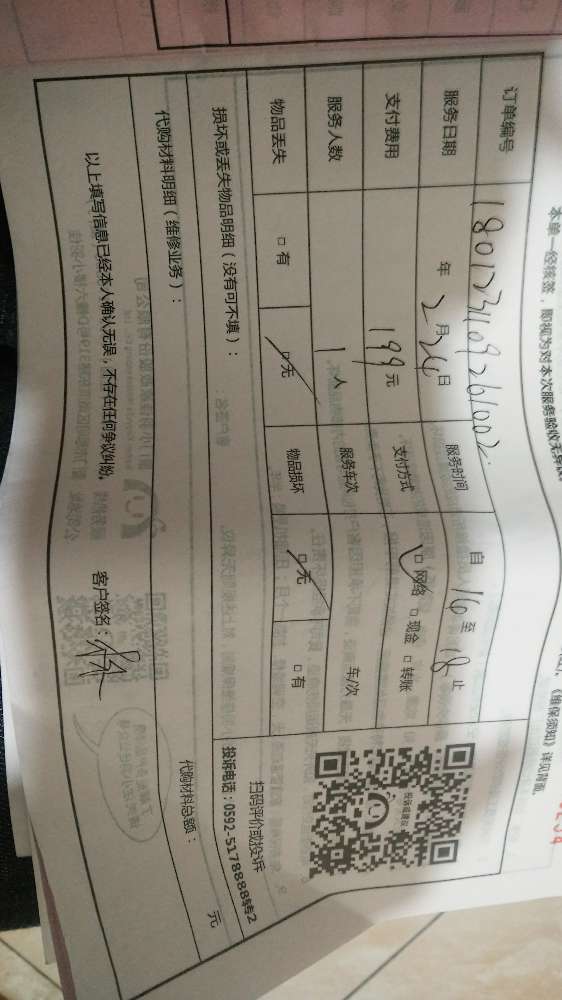 本单一经核签，即视为对本次服务验收无异议
《维保须知》详见背面。
订单编号 1801231109261002
服务日期 年 2 月 24 日 服务时间 自 16 至 18 止
支付费用 199 元 支付方式 □ 网络 □ 现金 □ 转账
服务人数 1 人 服务车次 车/次
物品丢失 □ 有 □ 无 物品损坏 □ 无 □ 有
投诉或建议
扫码评价或投诉
投诉电话：0592-5178888转2
损坏或丢失物品明细（没有可不填）：
代购材料明细（维修业务）： 代购材料总额： 元
以上填写信息已经本人确认无误，不存在任何争议纠纷。 客户签名：